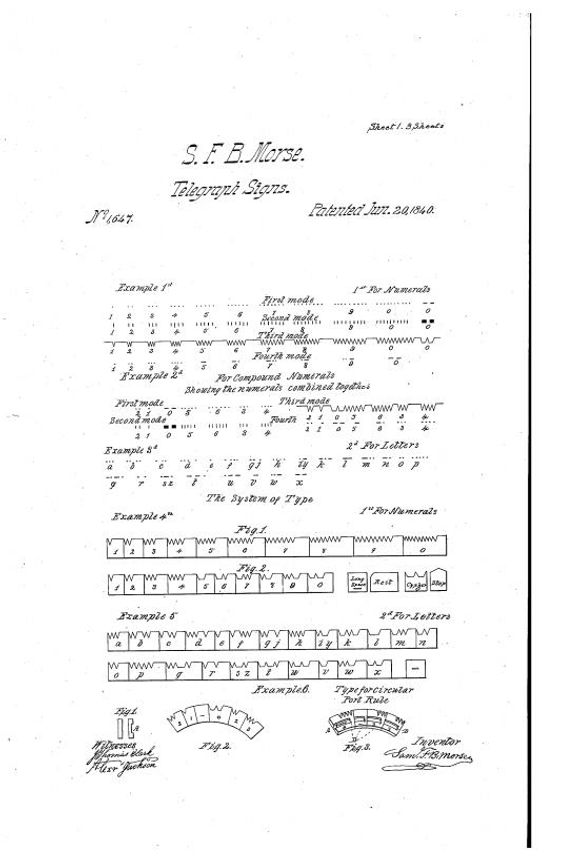 Sheet 1. 3 Sheets
S. F. B. Morse.
Telegraph Signs.
No 1,647.
Patented Jun. 20, 1840.
Example 1st
1st For Numerals
First mode
Second mode
1 2 3 4 5 6 7 8 9 0 0
Third mode
1 2 3 4 5 6 7 8 9 0 0
Fourth mode
1 2 3 4 5 6 7 8 9 0
Example 2d
For Compound Numerals
Showing the numerals combined together
First mode
Third mode
2 1 0 5 6 3 4
Second mode
Fourth
2 1 0 5 6 3 4
Example 3d
2d For Letters
a b c d e f gj h iy k l m n o p
q r sz t u v w x
The System of Type
Example 4th
1st For Numerals
Fig. 1.
1 2 3 4 5 6 7 8 9 0
Fig. 2.
1 2 3 4 5 6 7 8 9 0 Long Space Rest Stop
Example 5
2d For Letters
a b c d e f gj h iy k l m n
o p q r sz t u v w x
Example 6.
Type for circular
Port Rule
Fig. 1
Fig. 2.
Fig. 3.
Witnesses
Thomas Clark
Alexr Jackson
Inventor
Sam. F. B. Morse